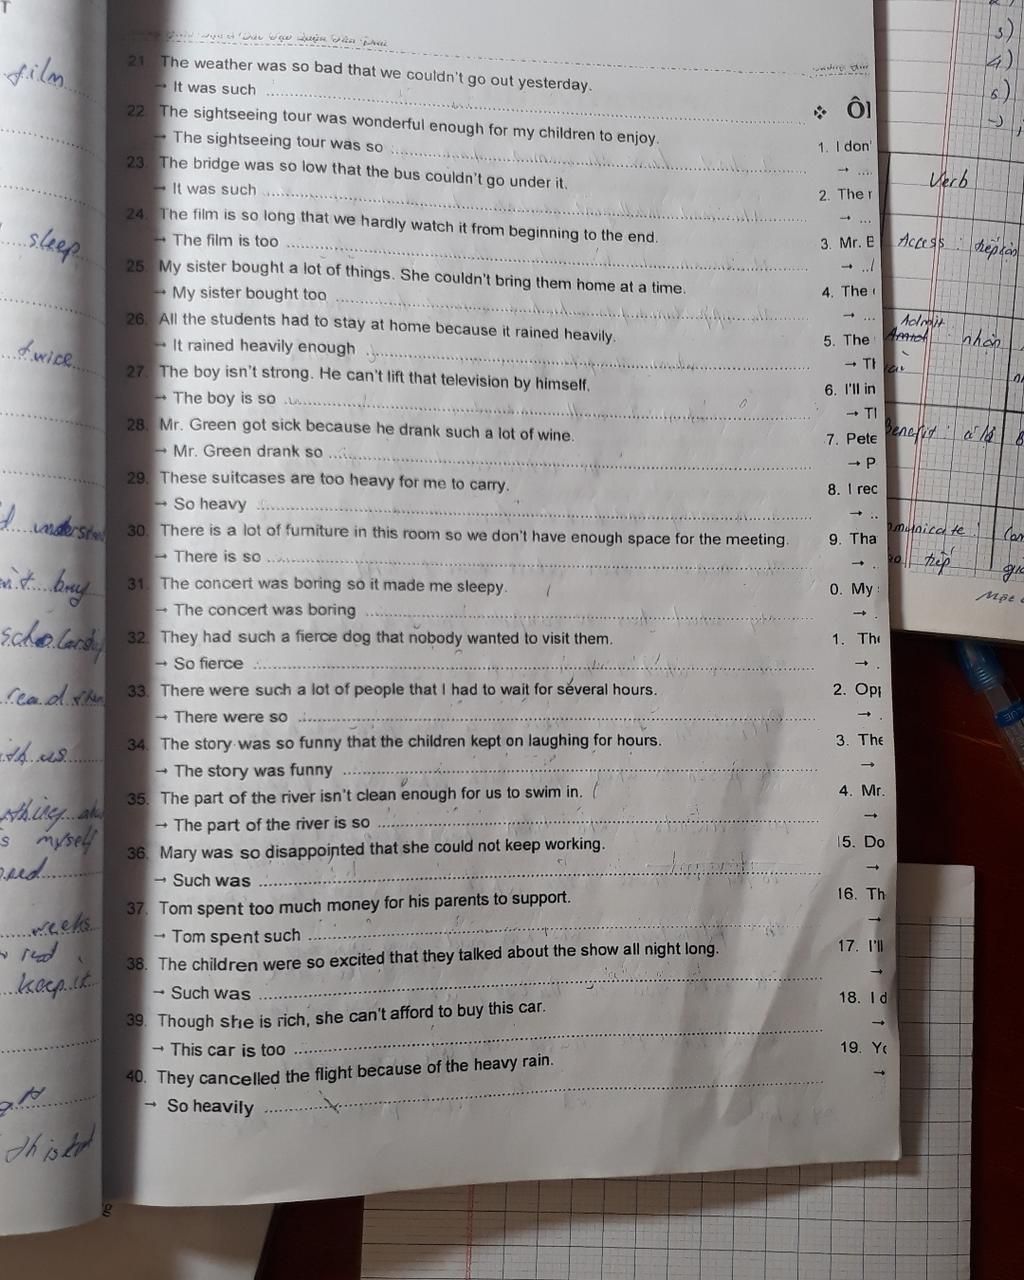 T
film
sleep
twice
understand
buy
read
us
myself
weeks
red
keep it
21. The weather was so bad that we couldn't go out yesterday.
→ It was such
22. The sightseeing tour was wonderful enough for my children to enjoy.
→ The sightseeing tour was so
23. The bridge was so low that the bus couldn't go under it.
→ It was such
24. The film is so long that we hardly watch it from beginning to the end.
→ The film is too
25. My sister bought a lot of things. She couldn't bring them home at a time.
→ My sister bought too
26. All the students had to stay at home because it rained heavily.
→ It rained heavily enough
27. The boy isn't strong. He can't lift that television by himself.
→ The boy is so
28. Mr. Green got sick because he drank such a lot of wine.
→ Mr. Green drank so
29. These suitcases are too heavy for me to carry.
→ So heavy
30. There is a lot of furniture in this room so we don't have enough space for the meeting.
→ There is so
31. The concert was boring so it made me sleepy.
→ The concert was boring
32. They had such a fierce dog that nobody wanted to visit them.
→ So fierce
33. There were such a lot of people that I had to wait for several hours.
→ There were so
34. The story was so funny that the children kept on laughing for hours.
→ The story was funny
35. The part of the river isn't clean enough for us to swim in.
→ The part of the river is so
36. Mary was so disappointed that she could not keep working.
→ Such was
37. Tom spent too much money for his parents to support.
→ Tom spent such
38. The children were so excited that they talked about the show all night long.
→ Such was
39. Though she is rich, she can't afford to buy this car.
→ This car is too
40. They cancelled the flight because of the heavy rain.
→ So heavily
❖ Ôl
1. I don'
→
2. The r
→
3. Mr. E
→
4. The
→
5. The
→ Th
6. I'll in
→ Tl
7. Pete
→ P
8. I rec
→
9. Tha
→
0. My
→
1. The
→
2. Opp
→
3. The
→
4. Mr.
→
15. Do
→
16. Th
→
17. I'll
→
18. I d
→
19. Yo
→
3)
4)
5)
→
Verb
Access : tiếp cận
Admit
nhận
Benefit :
municate :
tiếp